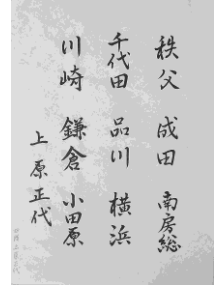 秩父 成田 南房総
千代田 品川 横浜
川崎 鎌倉 小田原
上原正代